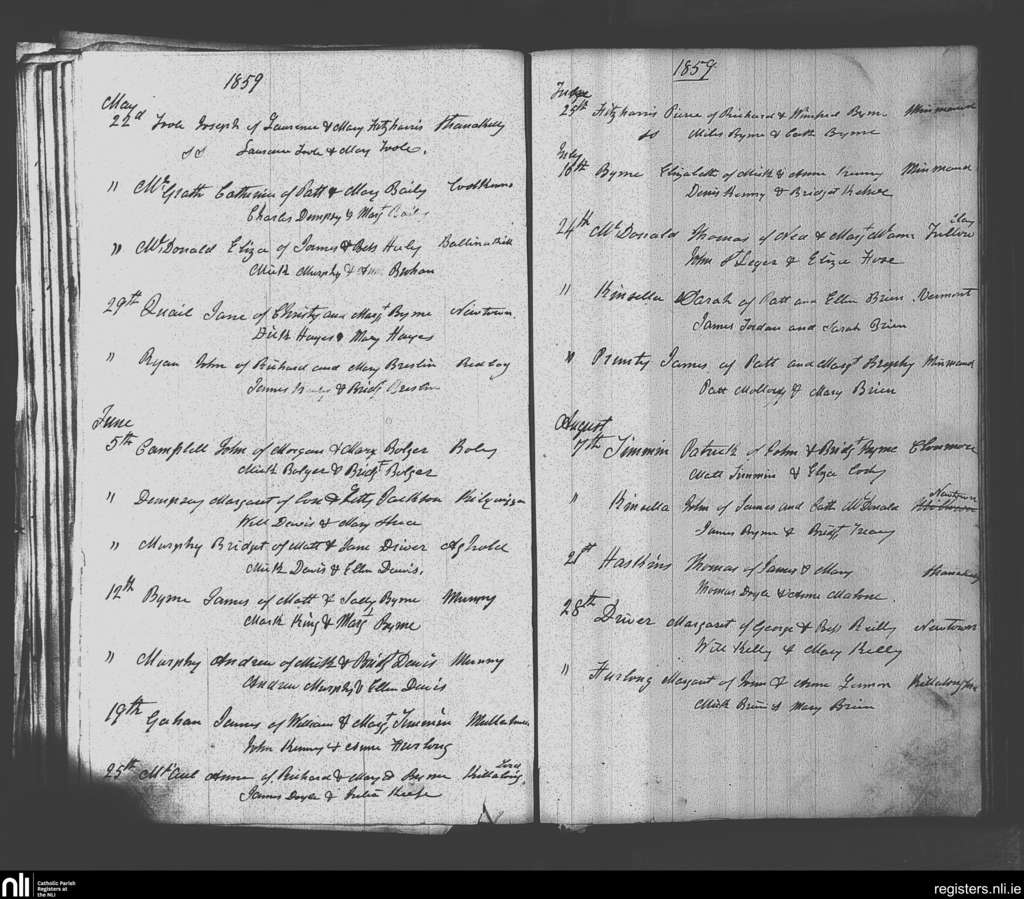 1859
May
22d Toole Joseph of Laurence & Mary Fitzharris
SS Laurence Toole & Mary Toole.
" McGrath Catherine of Patt & Mary Baily
Charles Dempsey & Margt
" McDonald Eliza of James & Bess
Mick Murphy &
29th Quail Jane of Christy and Margt Byrne Newtown.
Dick Hayes & Mary Hayes
" Ryan John of Richard and Mary Breslin Redbog
James & Bridgt Breslin
June
5th Campbell John of Morgan & Mary Bolger Boley
Mick Bolger & Bridgt Bolger
" Dempsey Margaret of & Kitty
Will Dewis & Mary
" Murphy Bridget of Matt & Jane Driver Aghold
Mick Davis & Ellen Davis.
12th Byrne James of Matt & Sally Byrne Munny
Mark King & Margt Byrne
" Murphy Andrew of Mick & Bridgt Davis Munny
Andrew Murphy & Ellen Davis
19th Gahan James of William & Margt Timmin
John Kenny & Anne Furlong
25th Anne of Richard & Mary Byrne
James Doyle & Julia Keefe
1859
June
25th Fitzharris Pierce of Richard & Winifred Byrne Minmaud
SS Miles Byrne & Cath Byrne
July
16th Byrne Elizabeth of Mick & Anne Kenny Minmaud
Denis Kenny & Bridgt Kehoe
24th McDonald Thomas of Ned & Margt
John St Leger & Eliza
" Kinsella Sarah of Patt and Ellen Brien Vermont
James Jordan and Sarah Brien
" James of Patt and Margt Brophy Minmaud
Patt Molloy & Mary Brien
August
7th Timmin Patrick of John & Bridgt Byrne Clonmore
Matt Timmin & Eliza Cody
Newtown
" Kinsella John of James and Cath McDonald
James Byrne & Bridgt
21st Haskins Thomas of James & Mary
Thomas Doyle & Anne Malone.
28th Driver Margaret of George & Bess Reilly Newtown
Will Kelly & Mary Kelly
" Furlong Margaret of John & Anne Lennon
Mick Brien & Mary Brien
nli Catholic Parish
Registers at
the NLI
registers.nli.ie